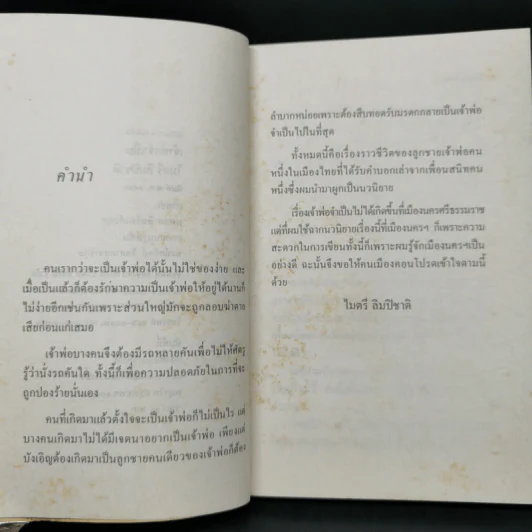 คำนำ
คนเรากว่าจะเป็นเจ้าพ่อได้นั้นไม่ใช่ของง่าย และ
เมื่อเป็นแล้วก็ต้องรักษาความเป็นเจ้าพ่อให้อยู่ได้นานก็
ไม่ง่ายอีกเช่นกันเพราะส่วนใหญ่มักจะถูกลอบฆ่าตาย
เสียก่อนแก่เสมอ
เจ้าพ่อบางคนจึงต้องมีรถหลายคันเพื่อไม่ให้ศัตรู
รู้ว่านั่งรถคันใด ทั้งนี้ก็เพื่อความปลอดภัยในการที่จะ
ถูกปองร้ายนั่นเอง
คนที่เกิดมาแล้วตั้งใจจะเป็นเจ้าพ่อก็ไม่เป็นไร แต่
บางคนเกิดมาไม่ได้มีเจตนาอยากเป็นเจ้าพ่อ เพียงแต่
บังเอิญต้องเกิดมาเป็นลูกชายคนเดียวของเจ้าพ่อก็ต้อง
ลำบากหน่อยเพราะต้องสืบทอดรับมรดกกลายเป็นเจ้าพ่อ
จำเป็นไปในที่สุด
ทั้งหมดนี้คือเรื่องราวชีวิตของลูกชายเจ้าพ่อคน
หนึ่งในเมืองไทยที่ได้รับคำบอกเล่าจากเพื่อนสนิทคน
หนึ่งซึ่งผมนำมาผูกเป็นวนิยาย
เรื่องเจ้าพ่อจำเป็นไม่ได้เกิดขึ้นที่เมืองนครศรีธรรมราช
แต่ที่ผมใช้ฉากนวนิยายเรื่องนี้ที่เมืองนครฯ ก็เพราะความ
สะดวกในการเขียนทั้งนี้ก็เพราะผมรู้จักเมืองนครฯเป็น
อย่างดี ฉะนั้นจึงขอให้คนเมืองคอนโปรดเข้าใจตามนี้
ด้วย
ไมตรี ลิมปิชาติ